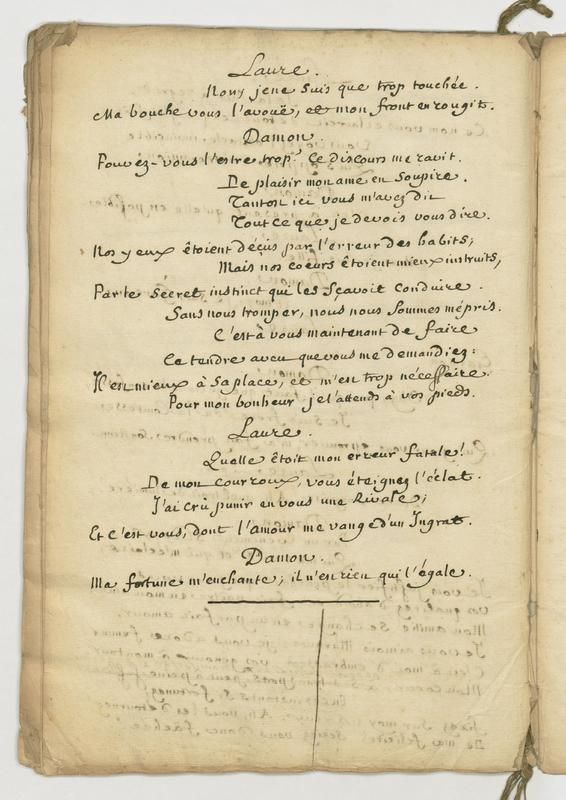 Laure.
Non, je ne suis que trop touchée.
Ma bouche vous l'avouë, et mon front en rougit.
Damon.
Pouvéz-vous l'estre trop? Ce discours me ravit.
De plaisir mon ame en soupire.
Tantost ici vous m'avéz dit
Tout ce que je devois vous dire.
Nos yeux êtoient déçûs par l'erreur des habits;
Mais nos coeurs êtoient mieux instruits,
Par le secret instinct qui les sçavoit conduire.
Sans nous tromper, nous nous sommes mépris.
C'est à vous maintenant de faire
Ce tendre aveu que vous me demandiez:
Il est mieux à sa place, et m'est trop nécessaire.
Pour mon bonheur je l'attends à vos pieds.
Laure.
Quelle êtoit mon erreur fatale!
De mon courroux, vous éteignez l'éclat.
J'ai crû punir en vous une Rivale;
Et c'est vous, dont l'amour me vange d'un Ingrat.
Damon.
Ma fortune m'enchante; il n'en rien qui l'égale.